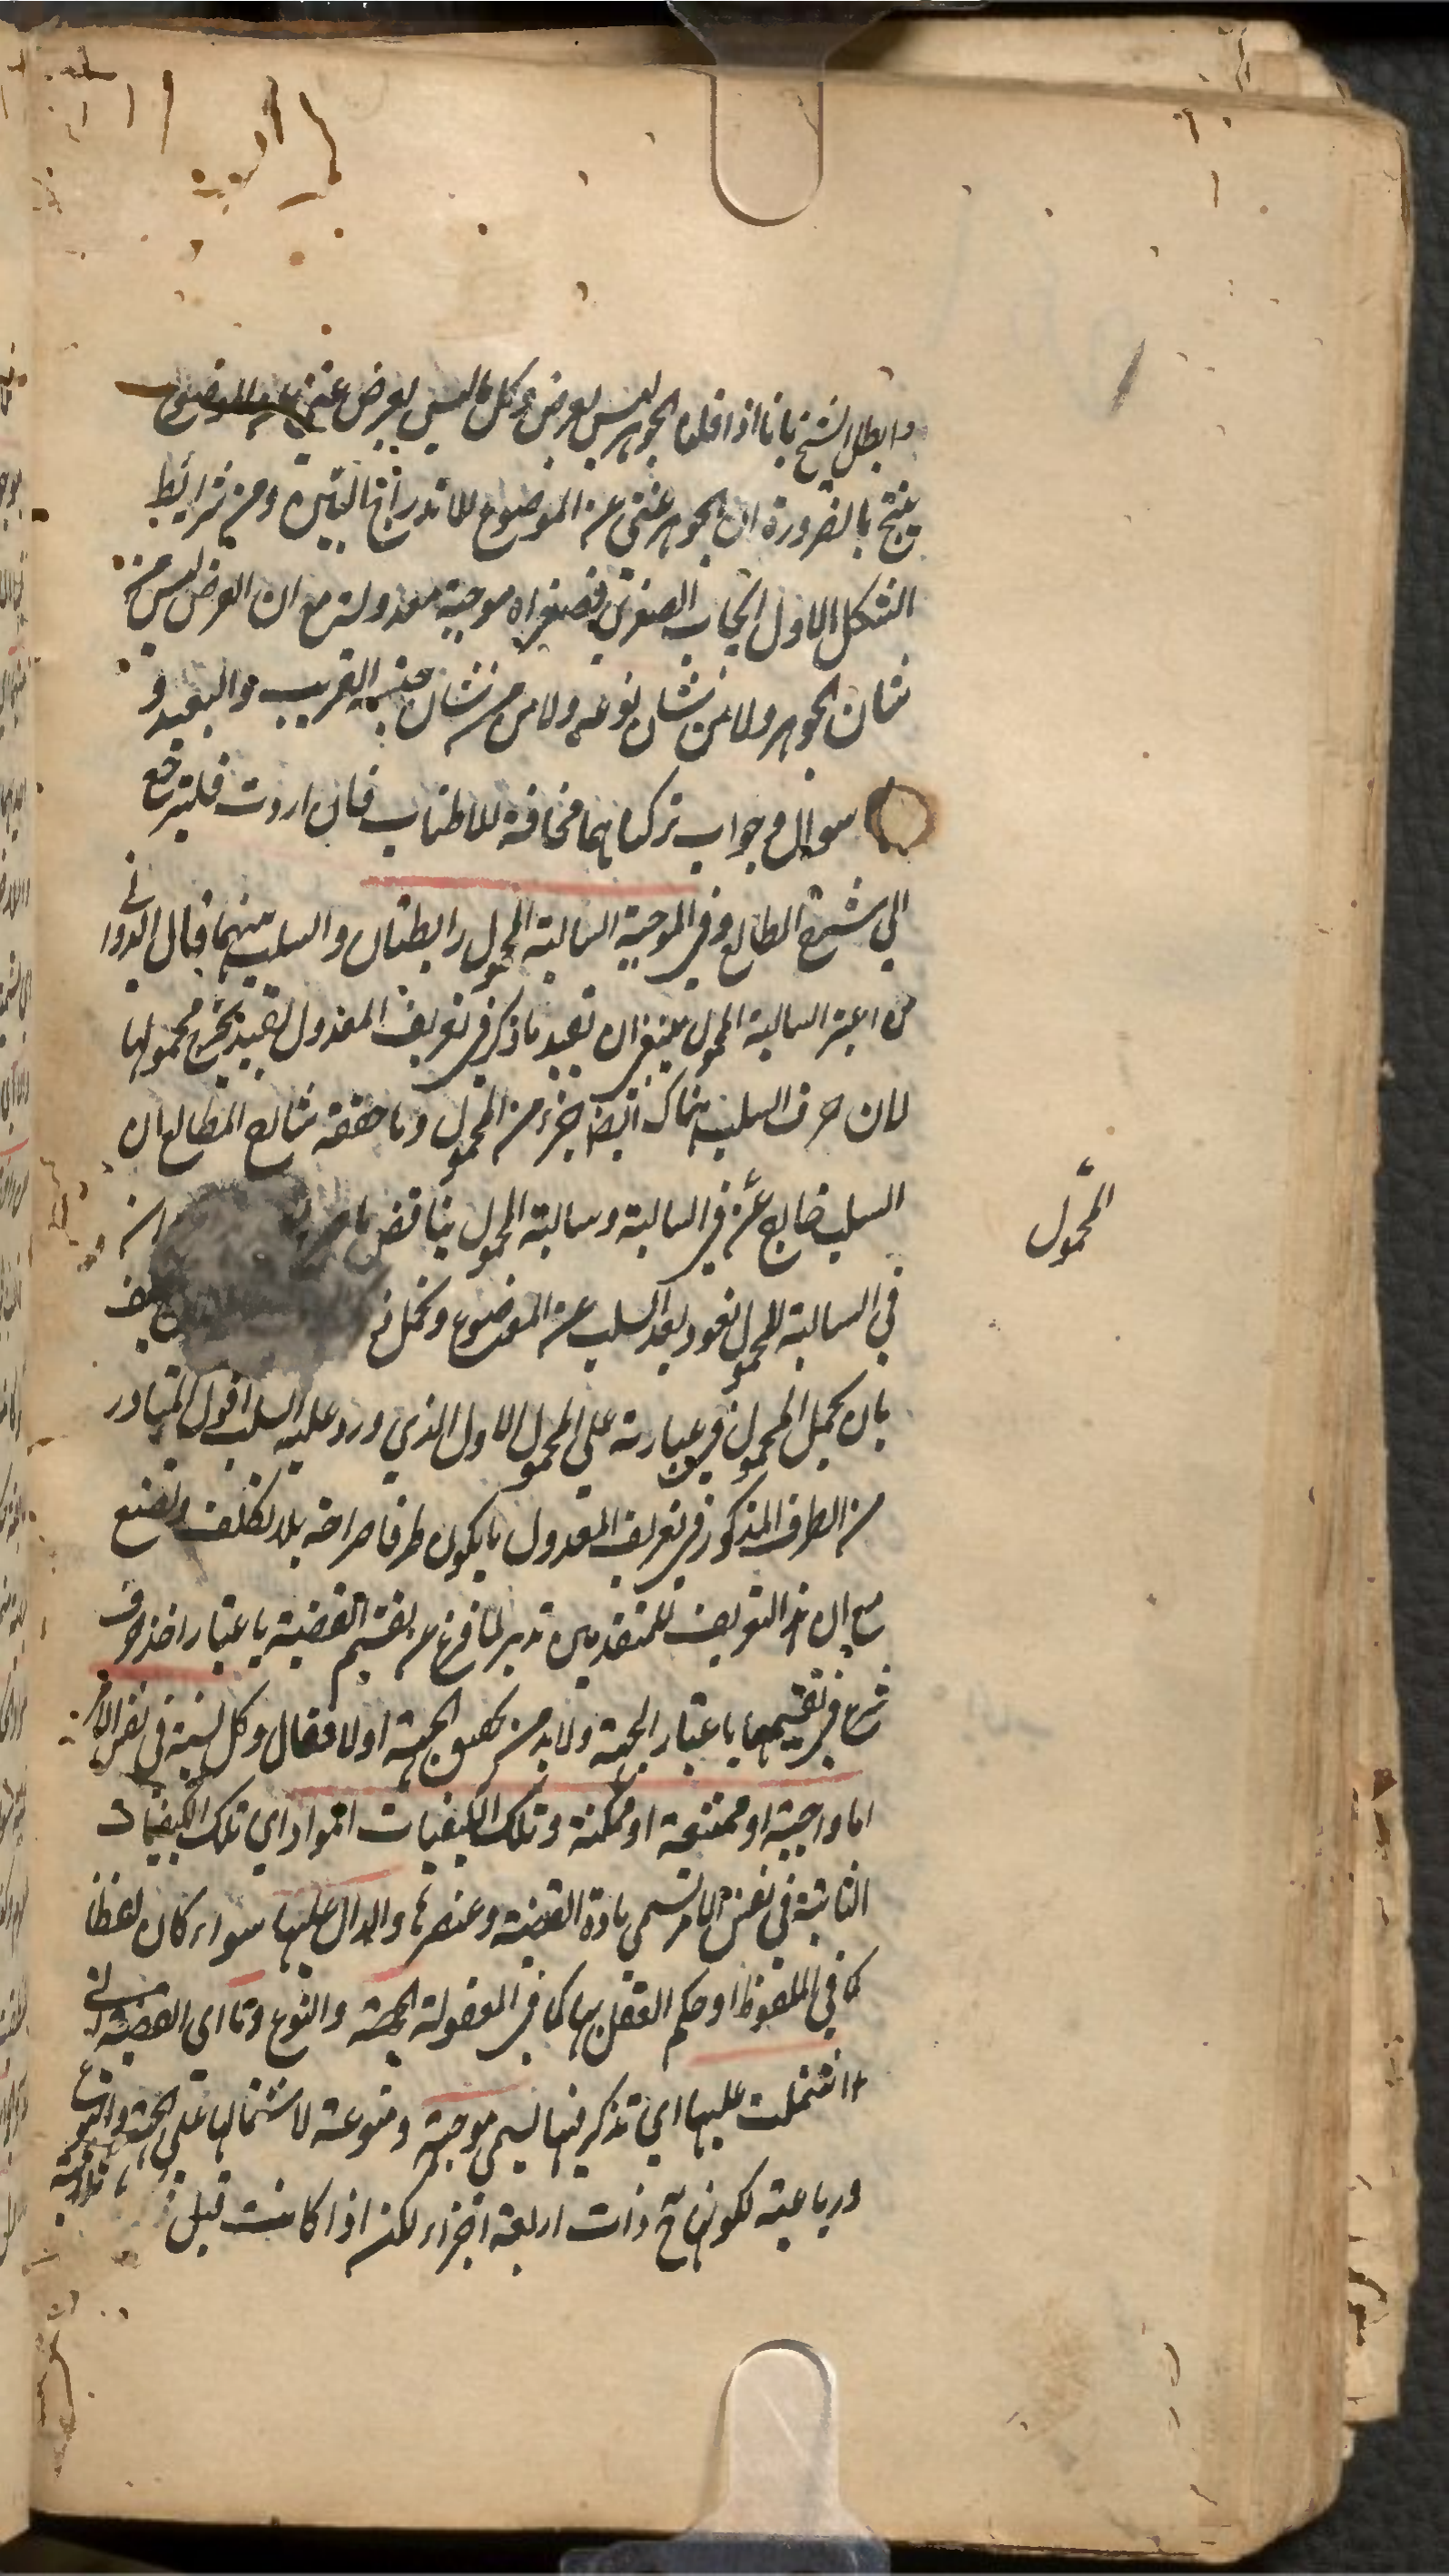 وابطل الشيخ بانا اذا قلنا الجوهر ليس بعرض وكل ما ليس بعرض غني عن الموضوع
ينتج بالضرورة ان الجوهر غني عن الموضوع للاندراج البين ومن شرائط
الشكل الاول ايجاب الصغرى فصغراه موجبة معدولة مع ان العرض ليس من
شان الجوهر ولا من شان نوعه ولا من شان جنسه القريب والبعيد و
سوال وجواب تركناهما مخافة للاطناب فان اردت فلترجع
الى شرح المطالع وفي الموجبة السالبة المحمول رابطتان والسلب بينهما قال الدوانى
من اعتبر السالبة المحمول ينبغي ان يقيد ما ذكر في تعريف المعدول بقيد يخرج محمولها
لان حرف السلب هناك ايضا جزء من المحمول وما حققه شارح المطالع ان
السلب خارج عن في السالبة وسالبة المحمول يناقض ان
المحمول
في السالبة المحمول نعود بعد السلب عن الموضوع
بان يحمل المحمول في عبارته على المحمول الاول الذي ورد عليه السلب اقول المتبادر
من الطرف المذكور في تعريف المعدول ما يكون طرفا صراحة بلا تكلف وتصنع
مع ان هذا التعريف للمتقدمين تدبر لما فرغ عن تقسيم القضية باعتبار اخذ حرف
شرع في تقسيمها باعتبار الجهة ولا بد من تحقيق الجهة اولا فقال وكل نسبة في نفس الامر
اما واجبة او ممتنعة او ممكنة وتلك الكيفيات المواد اي تلك الكيفيات
الثابتة في نفس الامر تسمى مادة القضية وعنصرها والدال عليها سواء كان لفظا
كما في الملفوظ او حكم العقل بها كما في المعقولة الجهة والنوع وما اى القضية التي
اشتملت عليها اي تذكر فيها تسمى موجهة ومنوعة لاشتمالها على الجهة والنوع
ورباعية لكونها ح ذات اربعة اجزاء لكن اذا كانت قبل